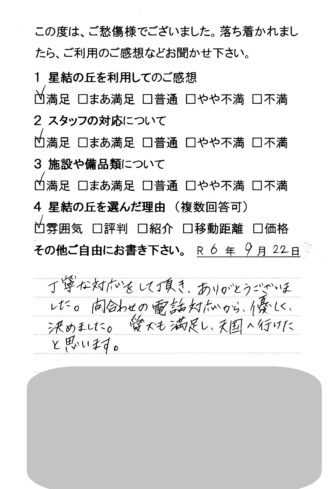 この度は、ご愁傷様でございました。落ち着かれまし
たら、ご利用のご感想などお聞かせ下さい。
1 星結の丘を利用してのご感想
☑満足 □まあ満足 □普通 □やや不満 □不満
2 スタッフの対応について
☑満足 □まあ満足 □普通 □やや不満 □不満
3 施設や備品類について
☑満足 □まあ満足 □普通 □やや不満 □不満
4 星結の丘を選んだ理由（複数回答可）
☑雰囲気 □評判 □紹介 □移動距離 □価格
その他ご自由にお書き下さい。 R 6 年 9 月 22 日
丁寧な対応をして頂き、ありがとうございま
した。問合わせの電話対応から、優しく、
決めました。愛犬も満足し、天国へ行けた
と思います。